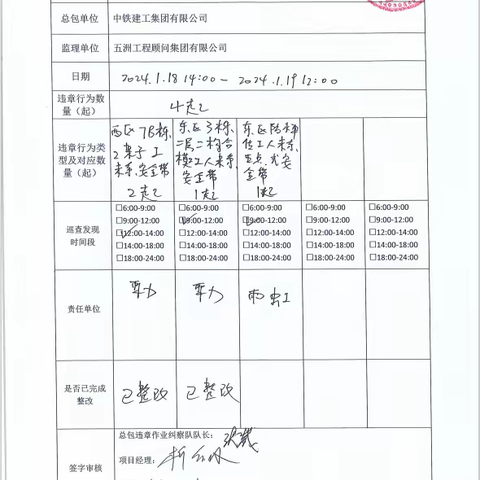 总包单位 中铁建工集团有限公司
监理单位 五洲工程顾问集团有限公司
日期 2024.1.18 14:00— 2024.1.19 12:00
违章行为数
量(起) 4起
违章行为类
型及对应数
量(起)
西区7B栋、
2架子工
未系安全带
2起
东区3栋、
二层二构合
模工人未系
安全带
1起
东区
工人未系
安全带
1起
巡查发现
时间段
☐6:00-9:00 ☐6:00-9:00 ☐6:00-9:00 ☐6:00-9:00 ☐6:00-9:00
☐9:00-12:00 ☑9:00-12:00 ☑9:00-12:00 ☐9:00-12:00 ☐9:00-12:00
☑12:00-14:00 ☐12:00-14:00 ☐12:00-14:00 ☐12:00-14:00 ☐12:00-14:00
☐14:00-18:00 ☐14:00-18:00 ☐14:00-18:00 ☐14:00-18:00 ☐14:00-18:00
☐18:00-24:00 ☐18:00-24:00 ☐18:00-24:00 ☐18:00-24:00 ☐18:00-24:00
责任单位
是否已完成
整改
已整改 已整改
签字审核
总包违章作业纠察队队长:
项目经理: